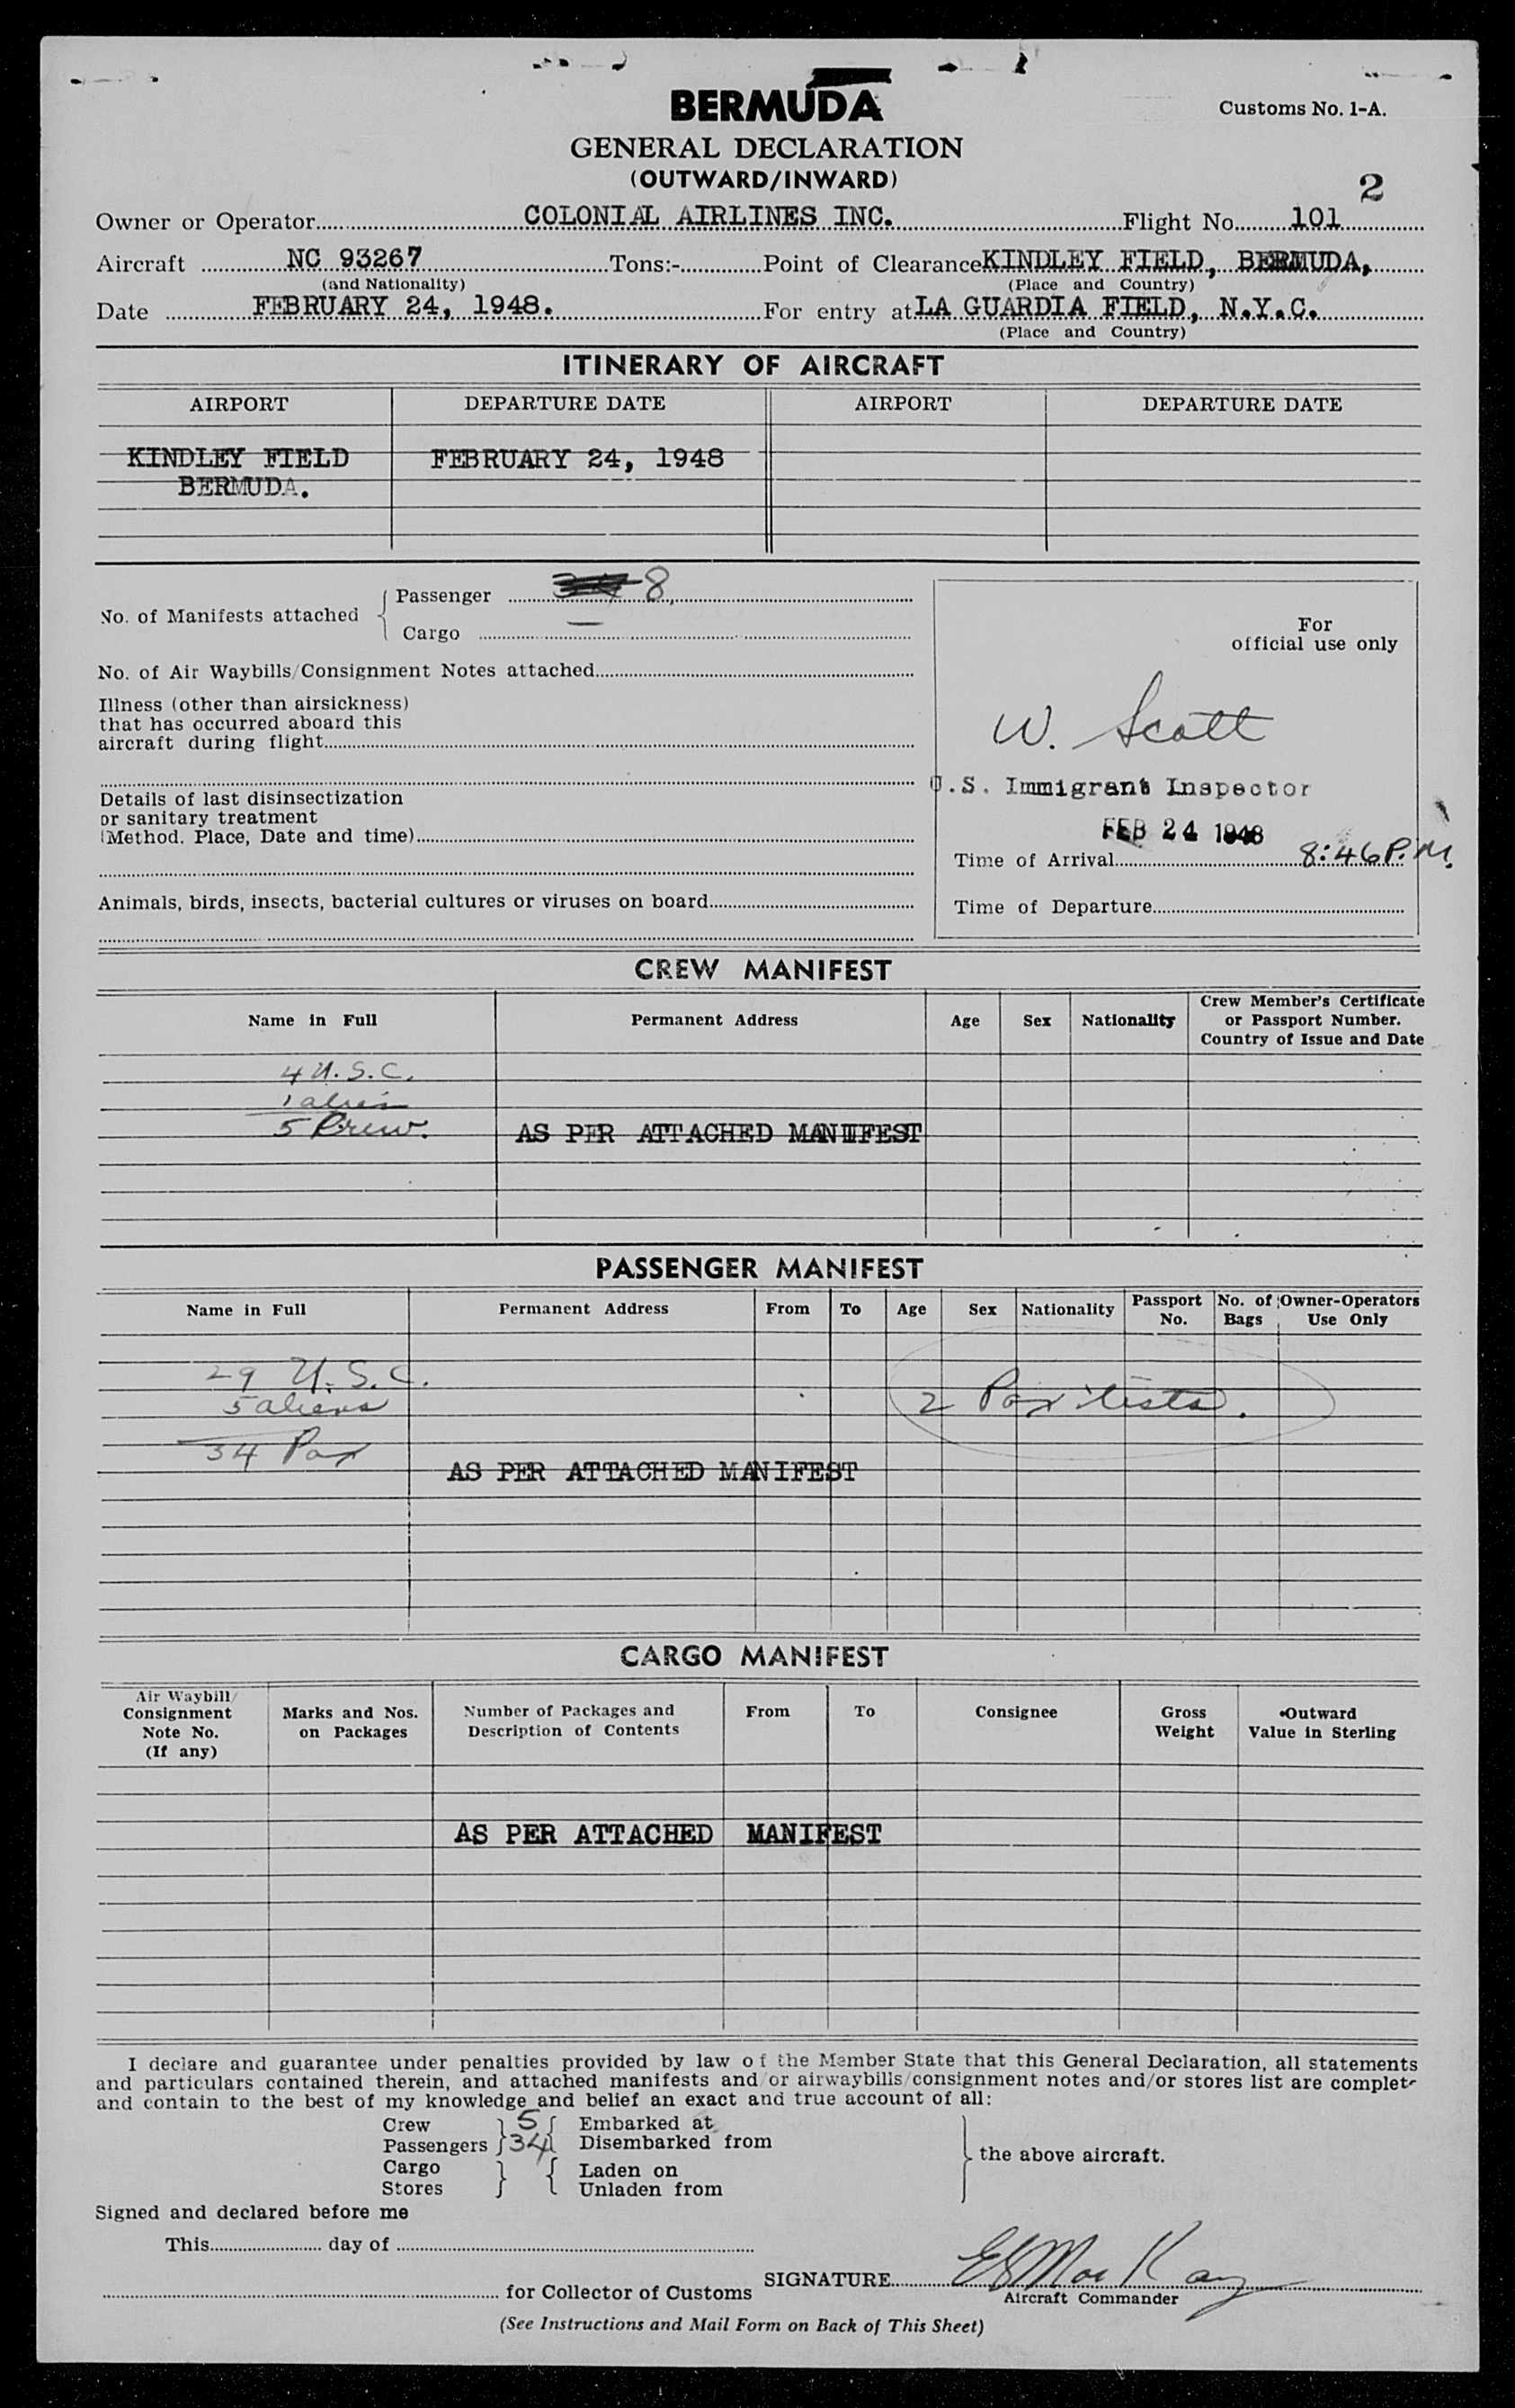 BERMUDA
Customs No. 1-A.
GENERAL DECLARATION
(OUTWARD/INWARD)
2
Owner or Operator COLONIAL AIRLINES INC. Flight No. 101
Aircraft NC 93267 Tons:- Point of Clearance KINDLEY FIELD, BERMUDA,
(and Nationality) (Place and Country)
Date FEBRUARY 24, 1948. For entry at LA GUARDIA FIELD, N.Y.C.
(Place and Country)
ITINERARY OF AIRCRAFT
AIRPORT DEPARTURE DATE AIRPORT DEPARTURE DATE
KINDLEY FIELD FEBRUARY 24, 1948
BERMUDA.
No. of Manifests attached
Passenger 8,
Cargo —
For
official use only
No. of Air Waybills/Consignment Notes attached
Illness (other than airsickness)
that has occurred aboard this
aircraft during flight
W. Scott
U.S. Immigrant Inspector
Details of last disinsectization
or sanitary treatment
(Method. Place, Date and time)
FEB 24 1948
Time of Arrival 8:46 P.M.
Animals, birds, insects, bacterial cultures or viruses on board
Time of Departure
CREW MANIFEST
Name in Full Permanent Address Age Sex Nationality Crew Member's Certificate
or Passport Number.
Country of Issue and Date
4 U.S.C.
1 alien
5 Crew.
AS PER ATTACHED MANIFEST
PASSENGER MANIFEST
Name in Full Permanent Address From To Age Sex Nationality Passport No. No. of Bags Owner-Operators Use Only
29 U.S.C.
5 aliens
2 Pax lists.
34 Pax
AS PER ATTACHED MANIFEST
CARGO MANIFEST
Air Waybill/
Consignment
Note No.
(If any)
Marks and Nos.
on Packages
Number of Packages and
Description of Contents
From
To
Consignee
Gross
Weight
Outward
Value in Sterling
AS PER ATTACHED MANIFEST
I declare and guarantee under penalties provided by law of the Member State that this General Declaration, all statements
and particulars contained therein, and attached manifests and/or airwaybills/consignment notes and/or stores list are complete
and contain to the best of my knowledge and belief an exact and true account of all:
Crew 5 Embarked at
Passengers 34 Disembarked from
the above aircraft.
Cargo Laden on
Stores Unladen from
Signed and declared before me
This day of
SIGNATURE E S MacKay
for Collector of Customs
Aircraft Commander
(See Instructions and Mail Form on Back of This Sheet)